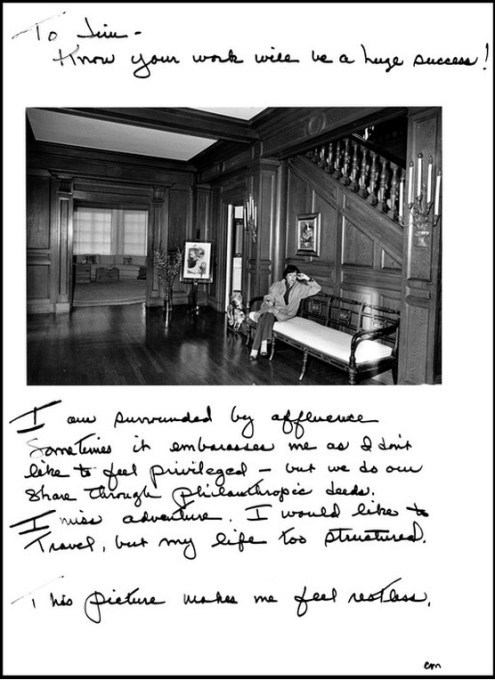 To Jim -
Know your work will be a huge success!
I am surrounded by affluence
Sometimes it embarasses me as I don't
like to feel privileged - but we do our
share through philanthropic deeds.
I miss adventure. I would like to
Travel, but my life too structured.
This picture makes me feel restless.
em